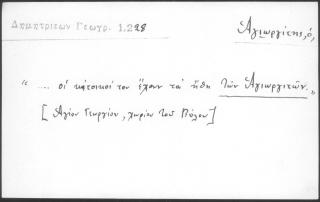 Δημητριέων Γεωγρ. 1.228 Ἁγιωργίτης, ὁ,
" .... οἱ κάτοικοί του ἔχουν τὰ ἤθη τῶν Ἁγιωργιτῶν."
[Ἁγίου Γεωργίου, χωρίου τοῦ Βόλου]